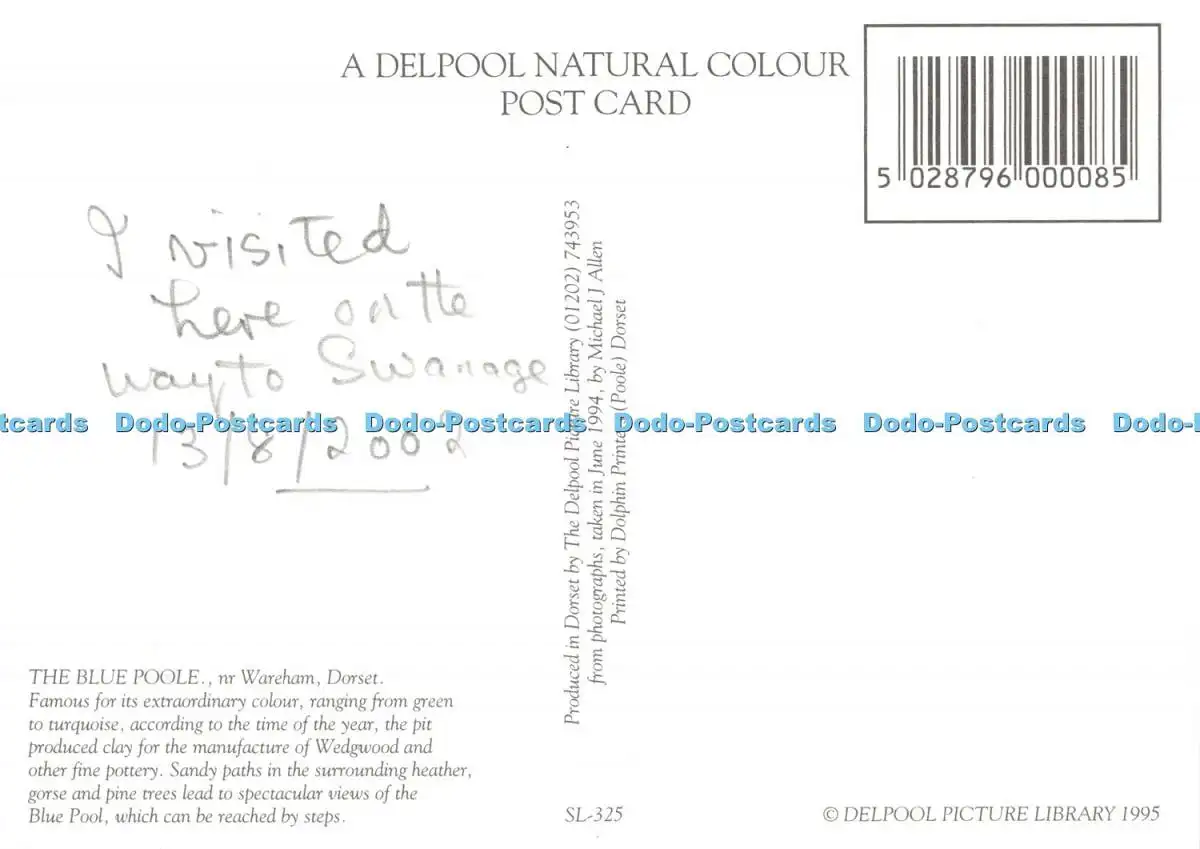 A DELPOOL NATURAL COLOUR
POST CARD
5 028796 000085
I visited
here on the
way to Swanage
13/8/2002
Produced in Dorset by The Delpool Picture Library (01202) 743953
from photographs, taken in June 1994, by Michael J Allen
Printed by Dolphin Printers (Poole) Dorset
Dodo-Postcards Dodo-Postcards Dodo-Postcards Dodo-Postcards
THE BLUE POOLE., nr Wareham, Dorset.
Famous for its extraordinary colour, ranging from green
to turquoise, according to the time of the year, the pit
produced clay for the manufacture of Wedgwood and
other fine pottery. Sandy paths in the surrounding heather,
gorse and pine trees lead to spectacular views of the
Blue Pool, which can be reached by steps.
SL-325
© DELPOOL PICTURE LIBRARY 1995